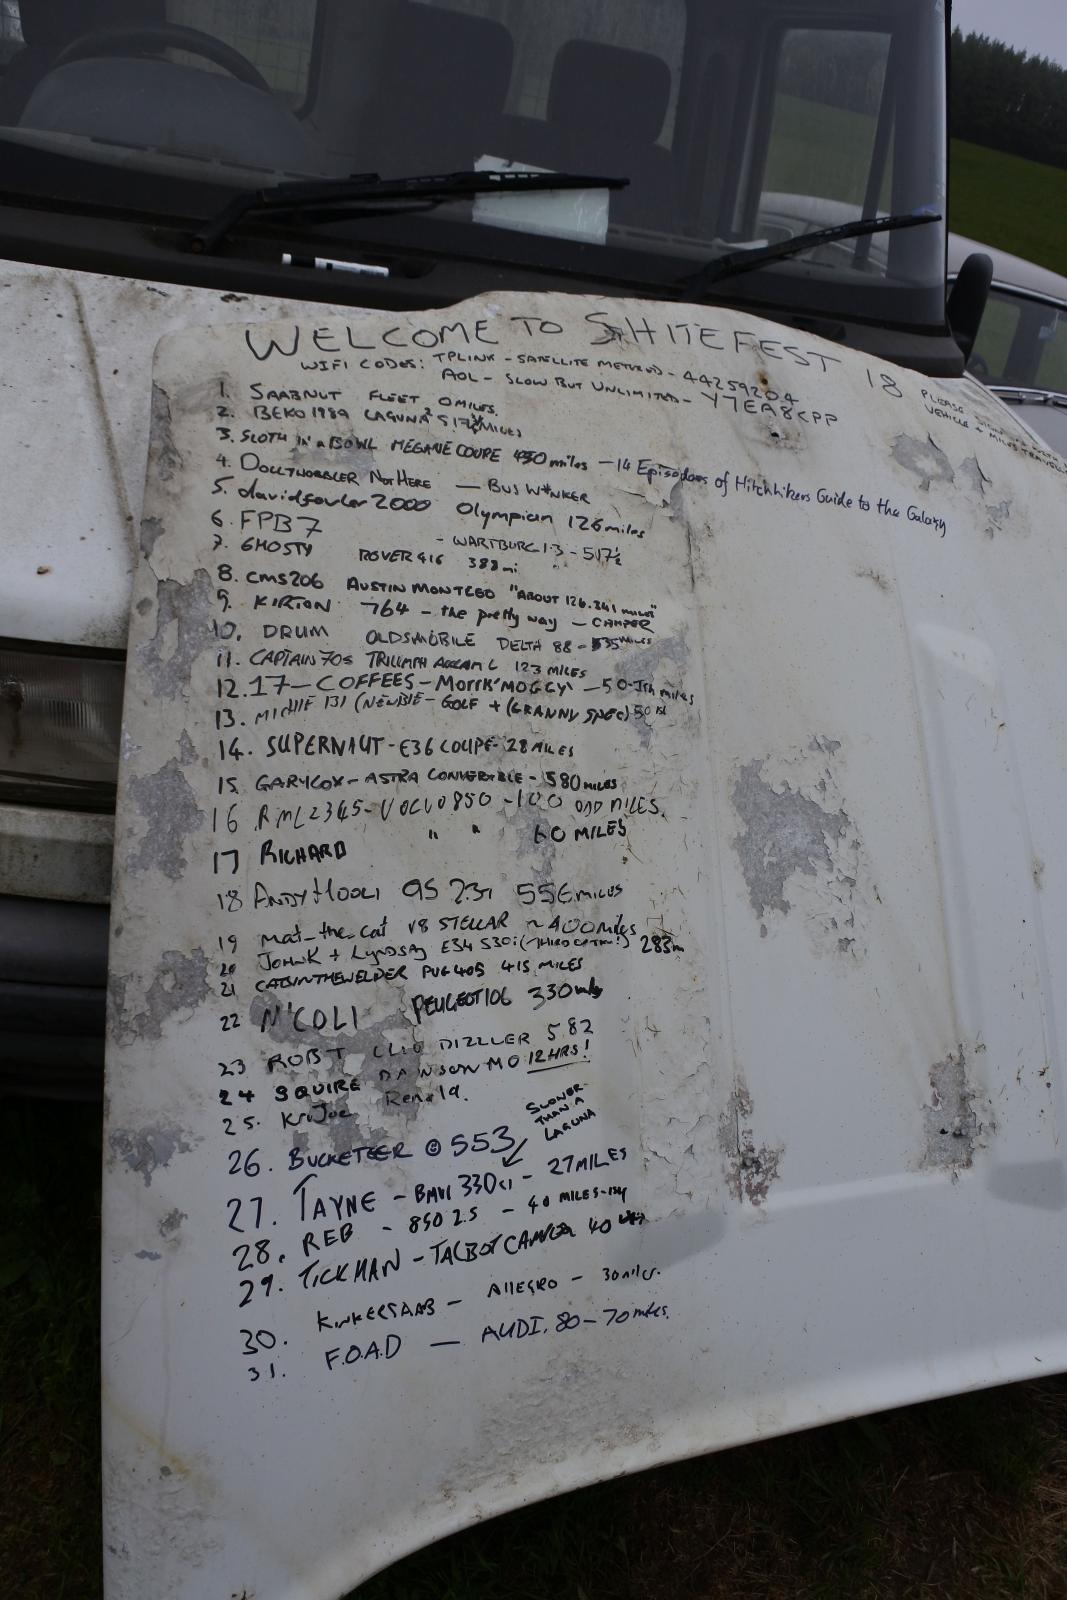 WELCOME TO SHITEFEST 18
WIFI CODES: TPLINK - SATELLITE METERED - 44259204
AOL - SLOW BUT UNLIMITED - Y7EA8CPP
PLEASE
VEHICLE + MILES TRAVELLED
1. SAABNUT FLEET 0 MILES.
2. BEKO1989 LAGUNA² MILES
3. SLOTH IN a BOWL MEGANE COUPE 450 miles - 14 Episodes of Hitchhikers Guide to the Galaxy
4. DOLLYWOBBLER NOT HERE - BUS W*NKER
5. davidfowler2000 Olympian 126 miles
6. FPB7 - WARTBURG 1.3 - 517½
7. GHOSTY ROVER 416 388mi
8. CMS206 AUSTIN MONTEGO "ABOUT 126.341 MILES"
9. KIRTON 764 - the pretty way - CAMPER
10. DRUM OLDSMOBILE DELTA 88 - 535 MILES
11. CAPTAIN 70s TRIUMPH ACCLAIM L 123 MILES
12. 17-COFFEES - Morris 'MOGGY' - 50-Ish miles
13. (NEWBIE - GOLF + (GRANNY SPEC) 50 ish
14. SUPERNAUT - E36 COUPE - 28 MILES
15 GARYCOX - ASTRA CONVERTIBLE - 580 MILES
16 RML2345 - VOLVO 850 - 100 ODD MILES.
17 RICHARD " " 60 MILES
18 ANDYHOOLI 95 2.3T 556 MILES
19 mat_the_cat V8 STELLAR ~ 400 miles
20 JOHNK + Lyndsay E34 530i 283m
21 CATSINTHEWELDER PUG 405 415 MILES
22 N'COLI PEUGEOT 106 330 mls
23 ROBT CLIO DIZZLER 582
24 SQUIRE DAWSON MO 12 HRS!
25. KruJoe
26. BUCKETEER @ 553
SLOWER THAN A LAGUNA
27. TAYNE - BMW 330ci - 27 MILES
28. REB - 850 2.5 - 40 MILES-ISH
29. TICKMAN - TALBOT CAMPER 40
30. KINKERSAAB - ALLEGRO - 30 miles.
31. F.O.A.D - AUDI. 80 - 70 miles.